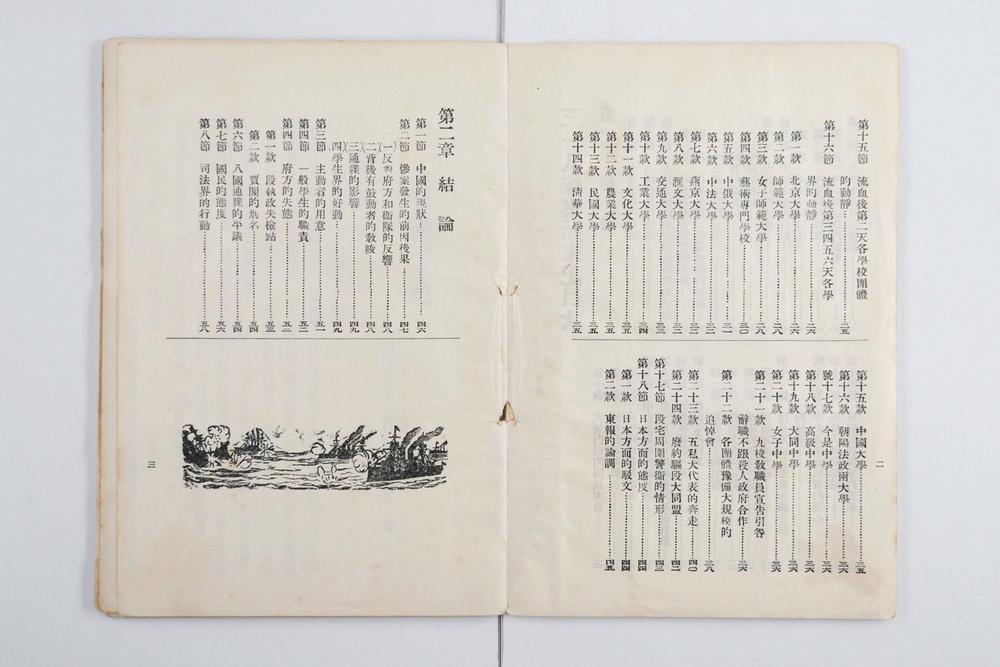 第十五節 流血後第二天各學校團體
的動靜……二五
第十六節 流血後第三四五六天各學
界的動靜……二六
第一款 北京大學……二六
第二款 師範大學……二八
第三款 女子師範大學……二八
第四款 藝術專門學校……三〇
第五款 中俄大學……三一
第六款 中法大學……三一
第七款 燕京大學……三二
第八款 滙文大學……三二
第九款 交通大學……三三
第十款 工業大學……三四
第十一款 文化大學……三五
第十二款 農業大學……三五
第十三款 民國大學……三五
第十四款 清華大學……三五
第十五款 中國大學……三五
第十六款 朝陽法政兩大學……三六
號十七款 今是中學……三六
第十八款 高級中學……三六
第十九款 大同中學……三六
第二十款 女子中學……三六
第二十一款 九校敎職員宣告引咎
辭職不跟殺人政府合作……三六
第二十二款 各團體豫備大規模的
追悼會……三八
第二十三款 五私大代表的奔走……四〇
第二十四款 廢約驅段大同盟……四二
第十七節 段宅周圍警衞的情形……四三
第十八節 日本方面的態度……四四
第一款 日本方面的駁文……四四
第二款 東報的論調……四五
二
第二章 結論
第一節 中國的現狀……四六
第二節 慘案發生的前因後果……四七
(一)反響府方和衞隊的反響……四八
(二)背後有鼓動者的敎唆……四八
(三)通牒的影響……四九
(四)學生界的好動……四九
第三節 主動者的用意……五一
第四節 一般學生的職責……五二
第四節 府方的失態……五二
第一款 段執政失檢點……五三
第二款 賈閣的刑名……五四
第六節 八國通牒的平議……五四
第七節 國民的態度……五六
第八節 司法界的行動……五八
三